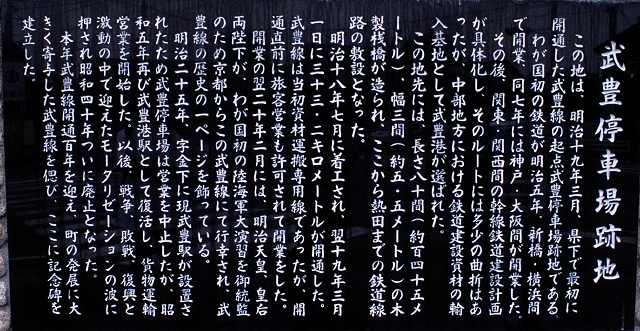 武豊停車場跡地
この地は、明治十九年三月、県下で最初に
開通した武豊線の起点武豊停車場跡地である。
わが国初の鉄道が明治五年、新橋・横浜間
で開業、同七年には神戸・大阪間が開業した。
その後、関東・関西間の幹線鉄道建設計画
が具体化し、そのルートには多少の曲折はあ
ったが、中部地方における鉄道建設資材の輸
入基地として武豊港が選ばれた。
この地先には、長さ八十間(約百四十五メ
ートル)、幅三間(約五・五メートル)の木
製桟橋が造られ、ここから熱田までの鉄道線
路の敷設となった。
明治十八年七月に着工され、翌十九年三月
一日に三十三・二キロメートルが開通した。
武豊線は当初資材運搬専用線であったが、開
通直前に旅客営業も許可されて開業をした。
開業の翌二十年二月には、明治天皇、皇后
両陛下が、わが国初の陸海軍大演習を御統監
のため京都からこの武豊線にて行幸され、武
豊線の歴史の一ページを飾っている。
明治二十五年、字金下に現武豊駅が設置さ
れたため武豊停車場は営業を中止したが、昭
和五年再び武豊港駅として復活し、貨物運輸
営業を開始した。以後、戦争、敗戦、復興と
激動の中で迎えたモータリゼーションの波に
押され昭和四十年ついに廃止となった。
本年武豊線開通百年を迎え、町の発展に大
きく寄与した武豊線を偲び、ここに記念碑を
建立した。